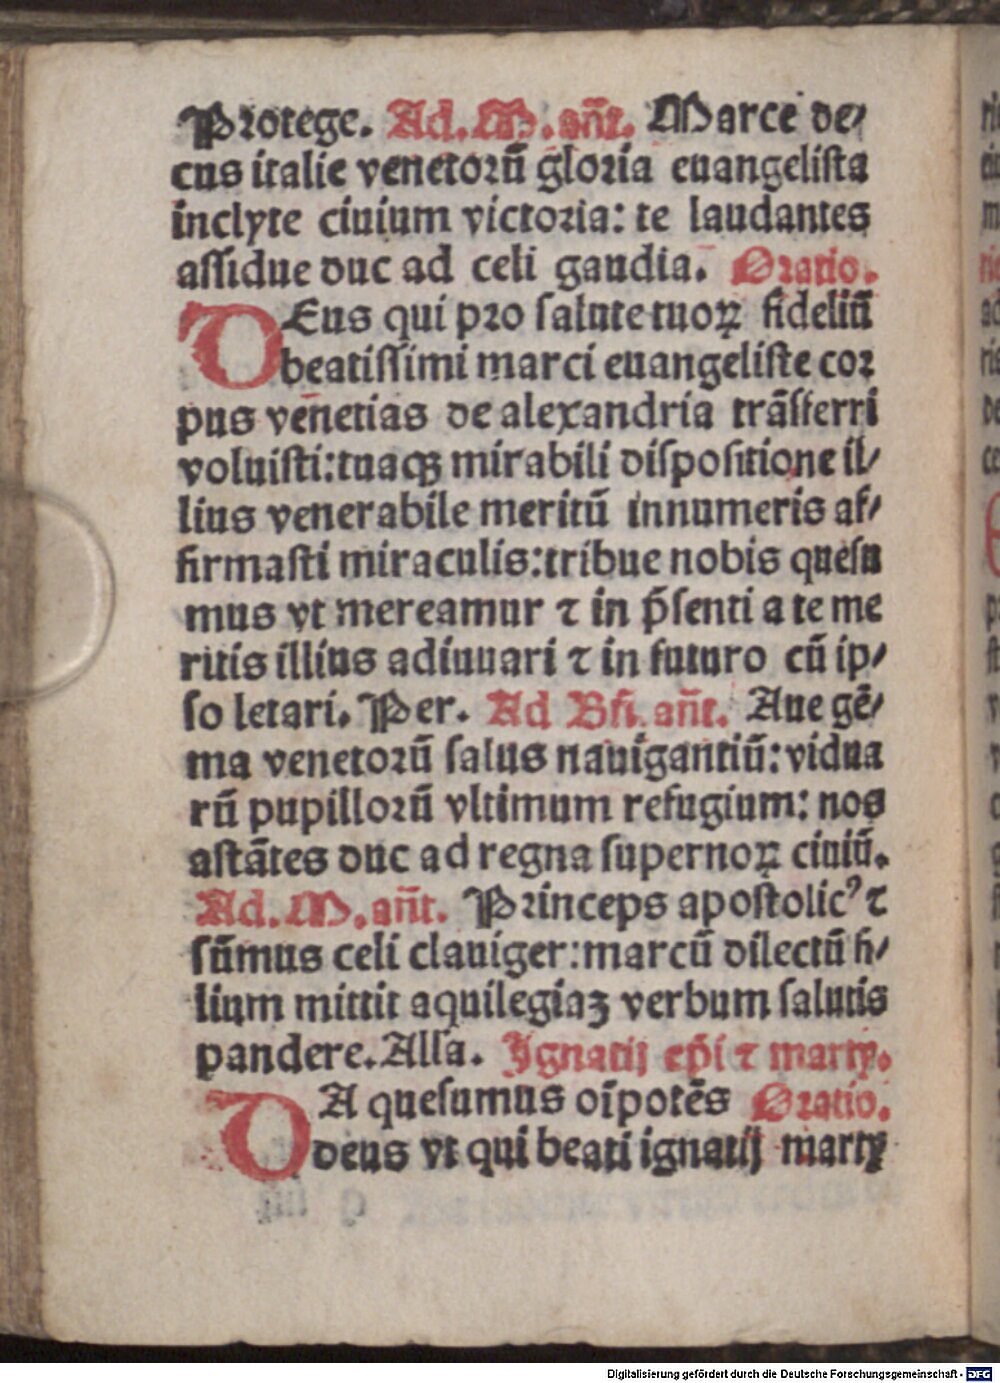 Protege. Ad. M. añt. Marce de/
cus italie venetoꝛū gloꝛia euangeliſta
inclyte ciuium victoꝛia: te laudantes
aſſidue duc ad celi gaudia. Oꝛatio.
DEus qui pꝛo ſalute tuoꝝ fideliū
beatiſſimi marci euangeliſte coꝛ
pus venetias de alexandria trāſferri
voluiſti: tuaqꝫ mirabili diſpoſitione il/
lius venerabile meritū innumeris af/
firmaſti miraculis: tribue nobis queſu
mus vt mereamur ⁊ in p̄ſenti a te me
ritis illius adiuuari ⁊ in futuro cū ip/
ſo letari. Per. Ad Bñ. añt. Aue gē/
ma venetoꝛū ſalus nauigantiū: vidua
rū pupilloꝛū vltimum refugium: nos
aſtātes duc ad regna ſupernoꝝ ciuiū.
Ad. M. añt. Pꝛinceps apoſtolicꝰ ⁊
ſūmus celi clauiger: marcū dilectū fi/
lium mittit aquilegiaꝫ verbum ſalutis
pandere. Alla. Ignatij ep̄i ⁊ marty.
DA queſumus oīpotēs Oꝛatio.
deus vt qui beati ignatij marty
Digitalisierung gefördert durch die Deutsche Forschungsgemeinschaft - DFG